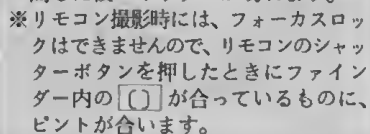 ※リモコン撮影時には、フォーカスロッ
クはできませんので、リモコンのシャッ
ターボタンを押したときにファイン
ダー内の[()]が合っているものに、
ピントが合います。